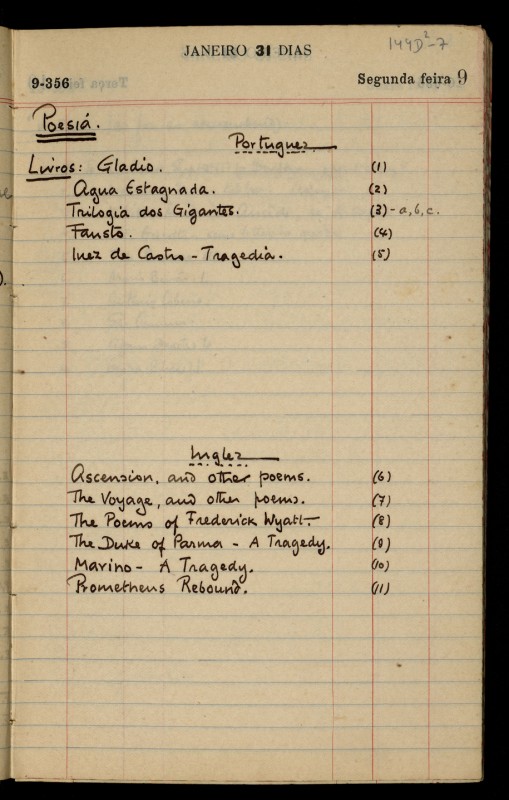 JANEIRO 31 DIAS
144D²-7
9-356
Segunda feira 9
Poesia.
Portuguez
Livros: Gladio. (1)
Agua Estagnada. (2)
Trilogia dos Gigantes. (3) - a, b, c.
Fausto. (4)
Inez de Castro - Tragedia. (5)
Inglez
Ascension, and other poems. (6)
The Voyage, and other poems. (7)
The Poems of Frederick Wyatt. (8)
The Duke of Parma - A Tragedy. (9)
Marino - A Tragedy. (10)
Prometheus Rebound. (11)